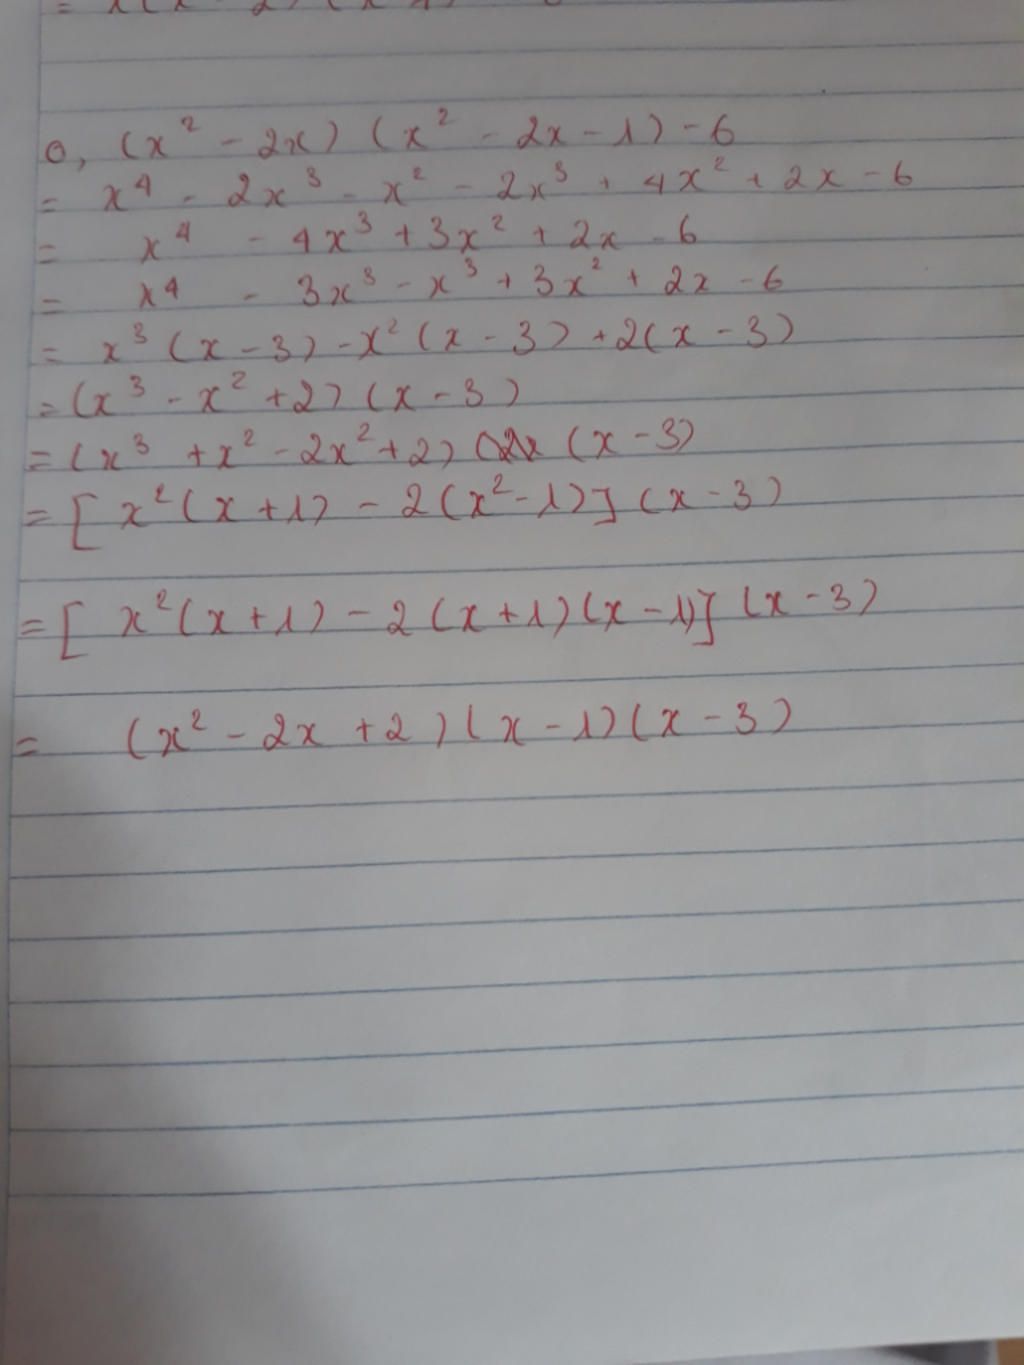 o, (x² - 2x) (x² - 2x - 1) - 6
= x⁴ - 2x³ - x² - 2x³ + 4x² + 2x - 6
= x⁴ - 4x³ + 3x² + 2x - 6
= x⁴ - 3x³ - x³ + 3x² + 2x - 6
= x³ (x - 3) - x² (x - 3) + 2(x - 3)
= (x³ - x² + 2) (x - 3)
= (x³ + x² - 2x² + 2) (x - 3)
= [ x² (x + 1) - 2 (x² - 1)] (x - 3)
= [ x² (x + 1) - 2 (x + 1) (x - 1)] (x - 3)
= (x² - 2x + 2) (x - 1) (x - 3)